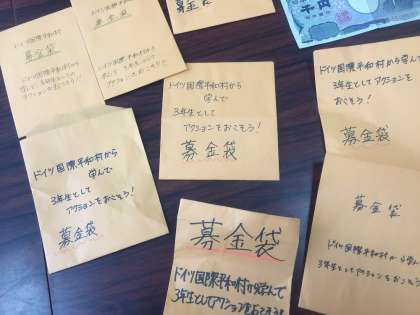 ドイツ国際平和村
募金袋
ドイツ国際平和村から
学んで
3年生として
アクションをおこそう!
募金袋
募金袋
ドイツ国際平和村から学んで
3年生として
アクションを
おこそう!
募金袋
ドイツ国際平和村から
学んで
3年生として
アクションをおこそう!
募金袋
ドイツ国際平和村から
学んで
3年生として
アクションをおこそう!
募金袋
募金袋
ドイツ国際平和村から学んで
3年生としてアクションをおこそう
募金袋
ドイツ国際平和村から学んで
3年生としてアクションをおこそう
千円